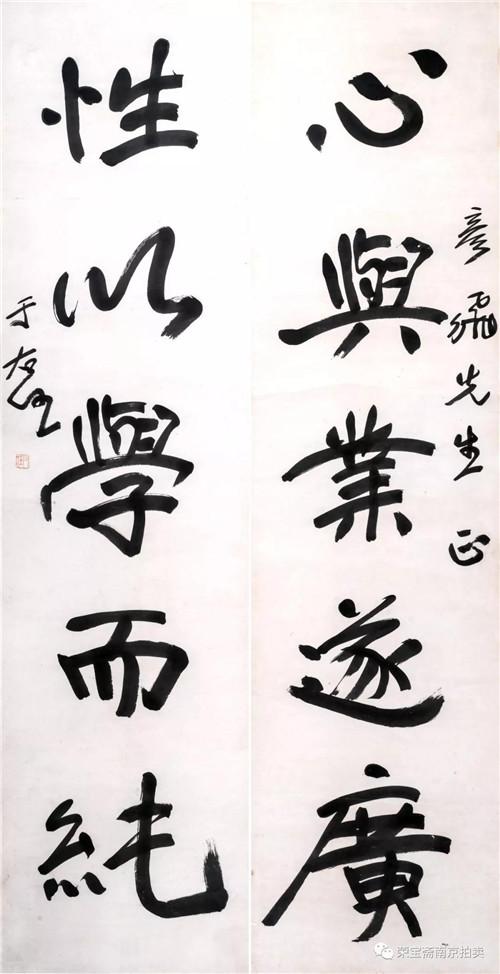 先生正
心與業遂廣
性以學而純
于右任
荣宝斋南京拍卖